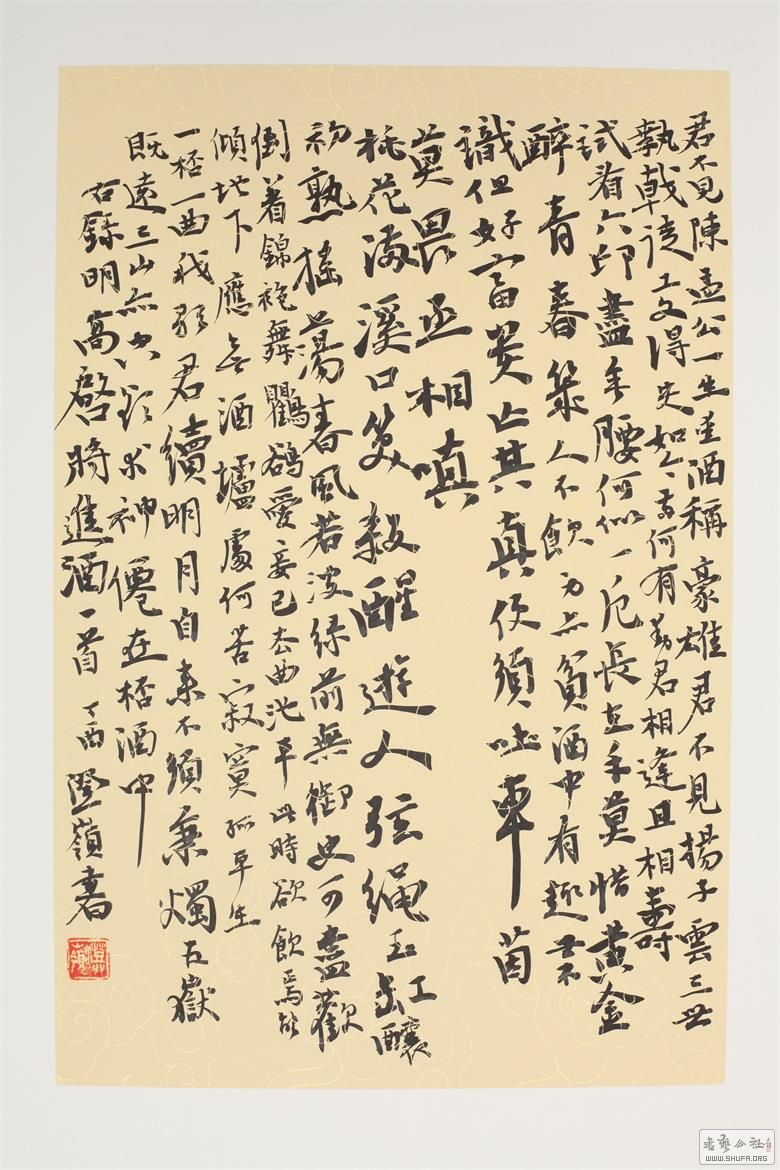 君不見陳孟公一生愛酒稱豪雄君不見揚子雲三世
執戟徒工文得失如今兩何有勸君相逢且相壽
試看六印盡垂腰何似一卮長在手莫惜黃金
醉青春幾人不飲身亦貧酒中有趣世不
識但好富貴亡其真便須吐車茵
莫畏丞相嗔
桃花滿溪口笑殺醒遊人弦繩玉缸釀
初熟搖蕩春風若波綠前無御史可盡歡
倒著錦袍舞鸜鵒愛妾已去曲池平此時欲飲焉能
傾地下應無酒壚處何苦寂寞孤平生
一桮一曲我歌君續明月自來不須秉燭五嶽
既遠三山亦空欲求神僊在桮酒中
右錄明高啓將進酒一首 丁酉澄嶺書
書藝公社
WWW.SHUFA.ORG